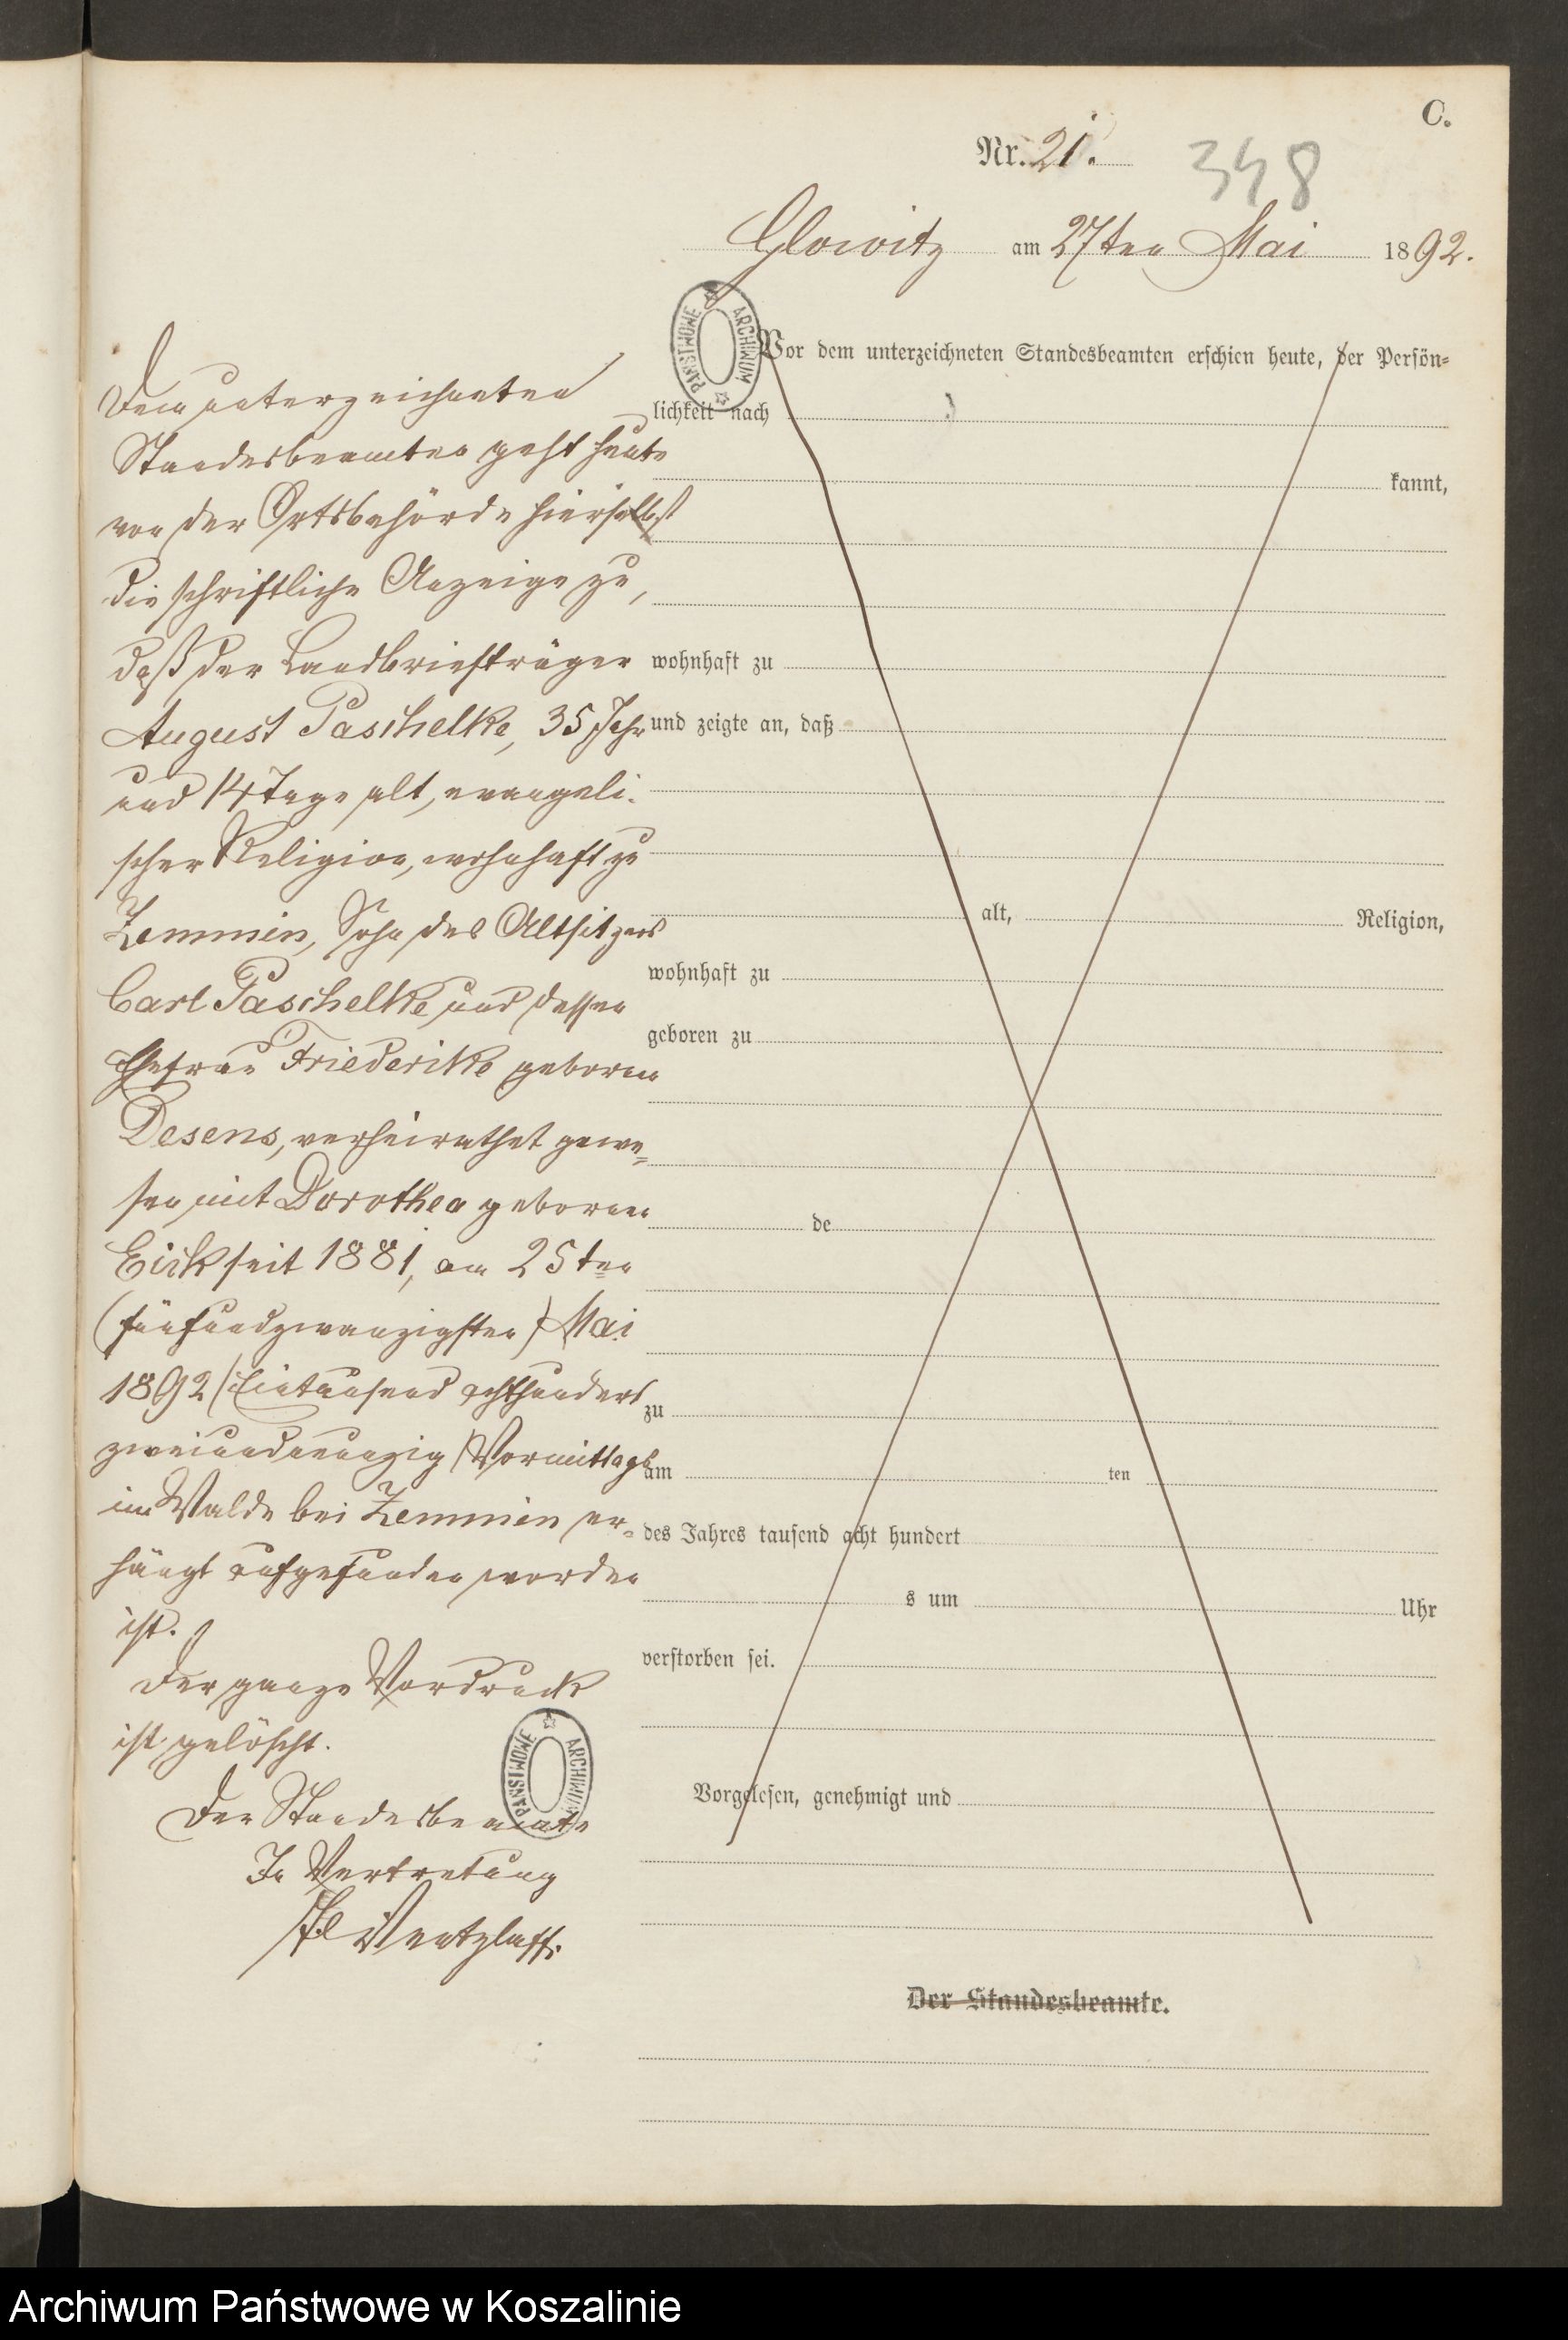 C.
Nr. 21.
348
Glowitz am 27ten Mai 1892.
PANSTWOWE ARCHIWUM
Vor dem unterzeichneten Standesbeamten erschien heute, der Persön-
lichkeit nach
kannt,
wohnhaft zu
und zeigte an, daß
alt, Religion,
wohnhaft zu
geboren zu
de
zu
am ten
des Jahres tausend acht hundert
s um Uhr
verstorben sei.
Vorgelesen, genehmigt und
Der Standesbeamte.
Dem unterzeichneten
Standesbeamten geht heute
von der Ortsbehörde hierselbst
die schriftliche Anzeige zu,
daß der Landbriefträger
August Paschelke, 35 Jahr
und 14 Tage alt, evangeli-
scher Religion, wohnhaft zu
Zemmin, Sohn des Altsitzers
Carl Paschelke und dessen
Ehefrau Friederike geboren
Desens, verheirathet gewe=
sen mit Dorothea geboren
Eick seit 1881, am 25ten
(fünfundzwanzigsten) Mai
1892 (Eintausend achthundert
zweiundneunzig) Vormittags
im Walde bei Zemmin er=
hängt aufgefunden worden
ist.
Der ganze Vordruck
ist gelöscht.
PANSTWOWE ARCHIWUM
Der Standesbeamte
In Vertretung
Wentzlaff.
Archiwum Państwowe w Koszalinie